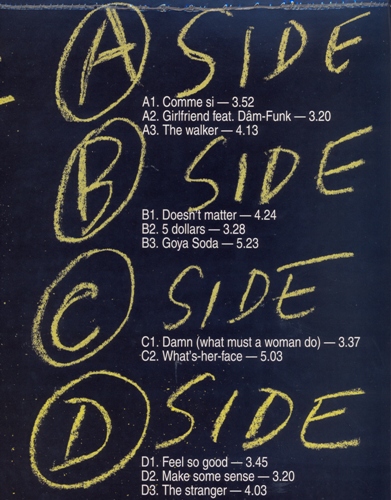 A SIDE
A1. Comme si — 3.52
A2. Girlfriend feat. Dâm-Funk — 3.20
A3. The walker — 4.13
B SIDE
B1. Doesn't matter — 4.24
B2. 5 dollars — 3.28
B3. Goya Soda — 5.23
C SIDE
C1. Damn (what must a woman do) — 3.37
C2. What's-her-face — 5.03
D SIDE
D1. Feel so good — 3.45
D2. Make some sense — 3.20
D3. The stranger — 4.03